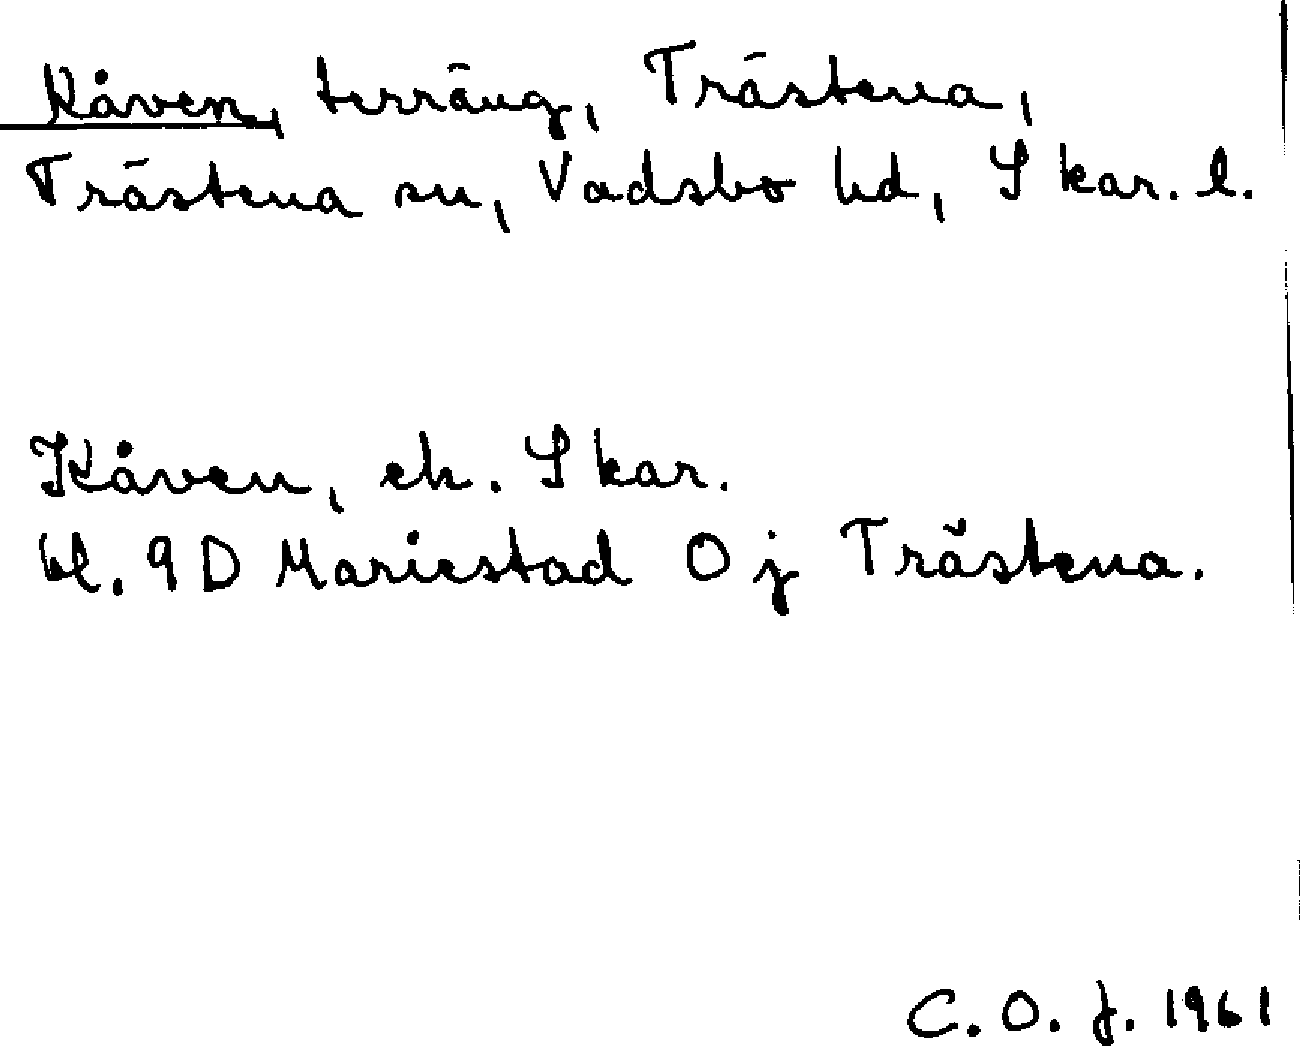 Kåven, terräng, Trästena,
Trästena sn, Vadsbo hd, Skar. l.
Kåven, ek. Skar.
bl. 9D Mariestad 0 j Trästena.
C. O. J. 1961